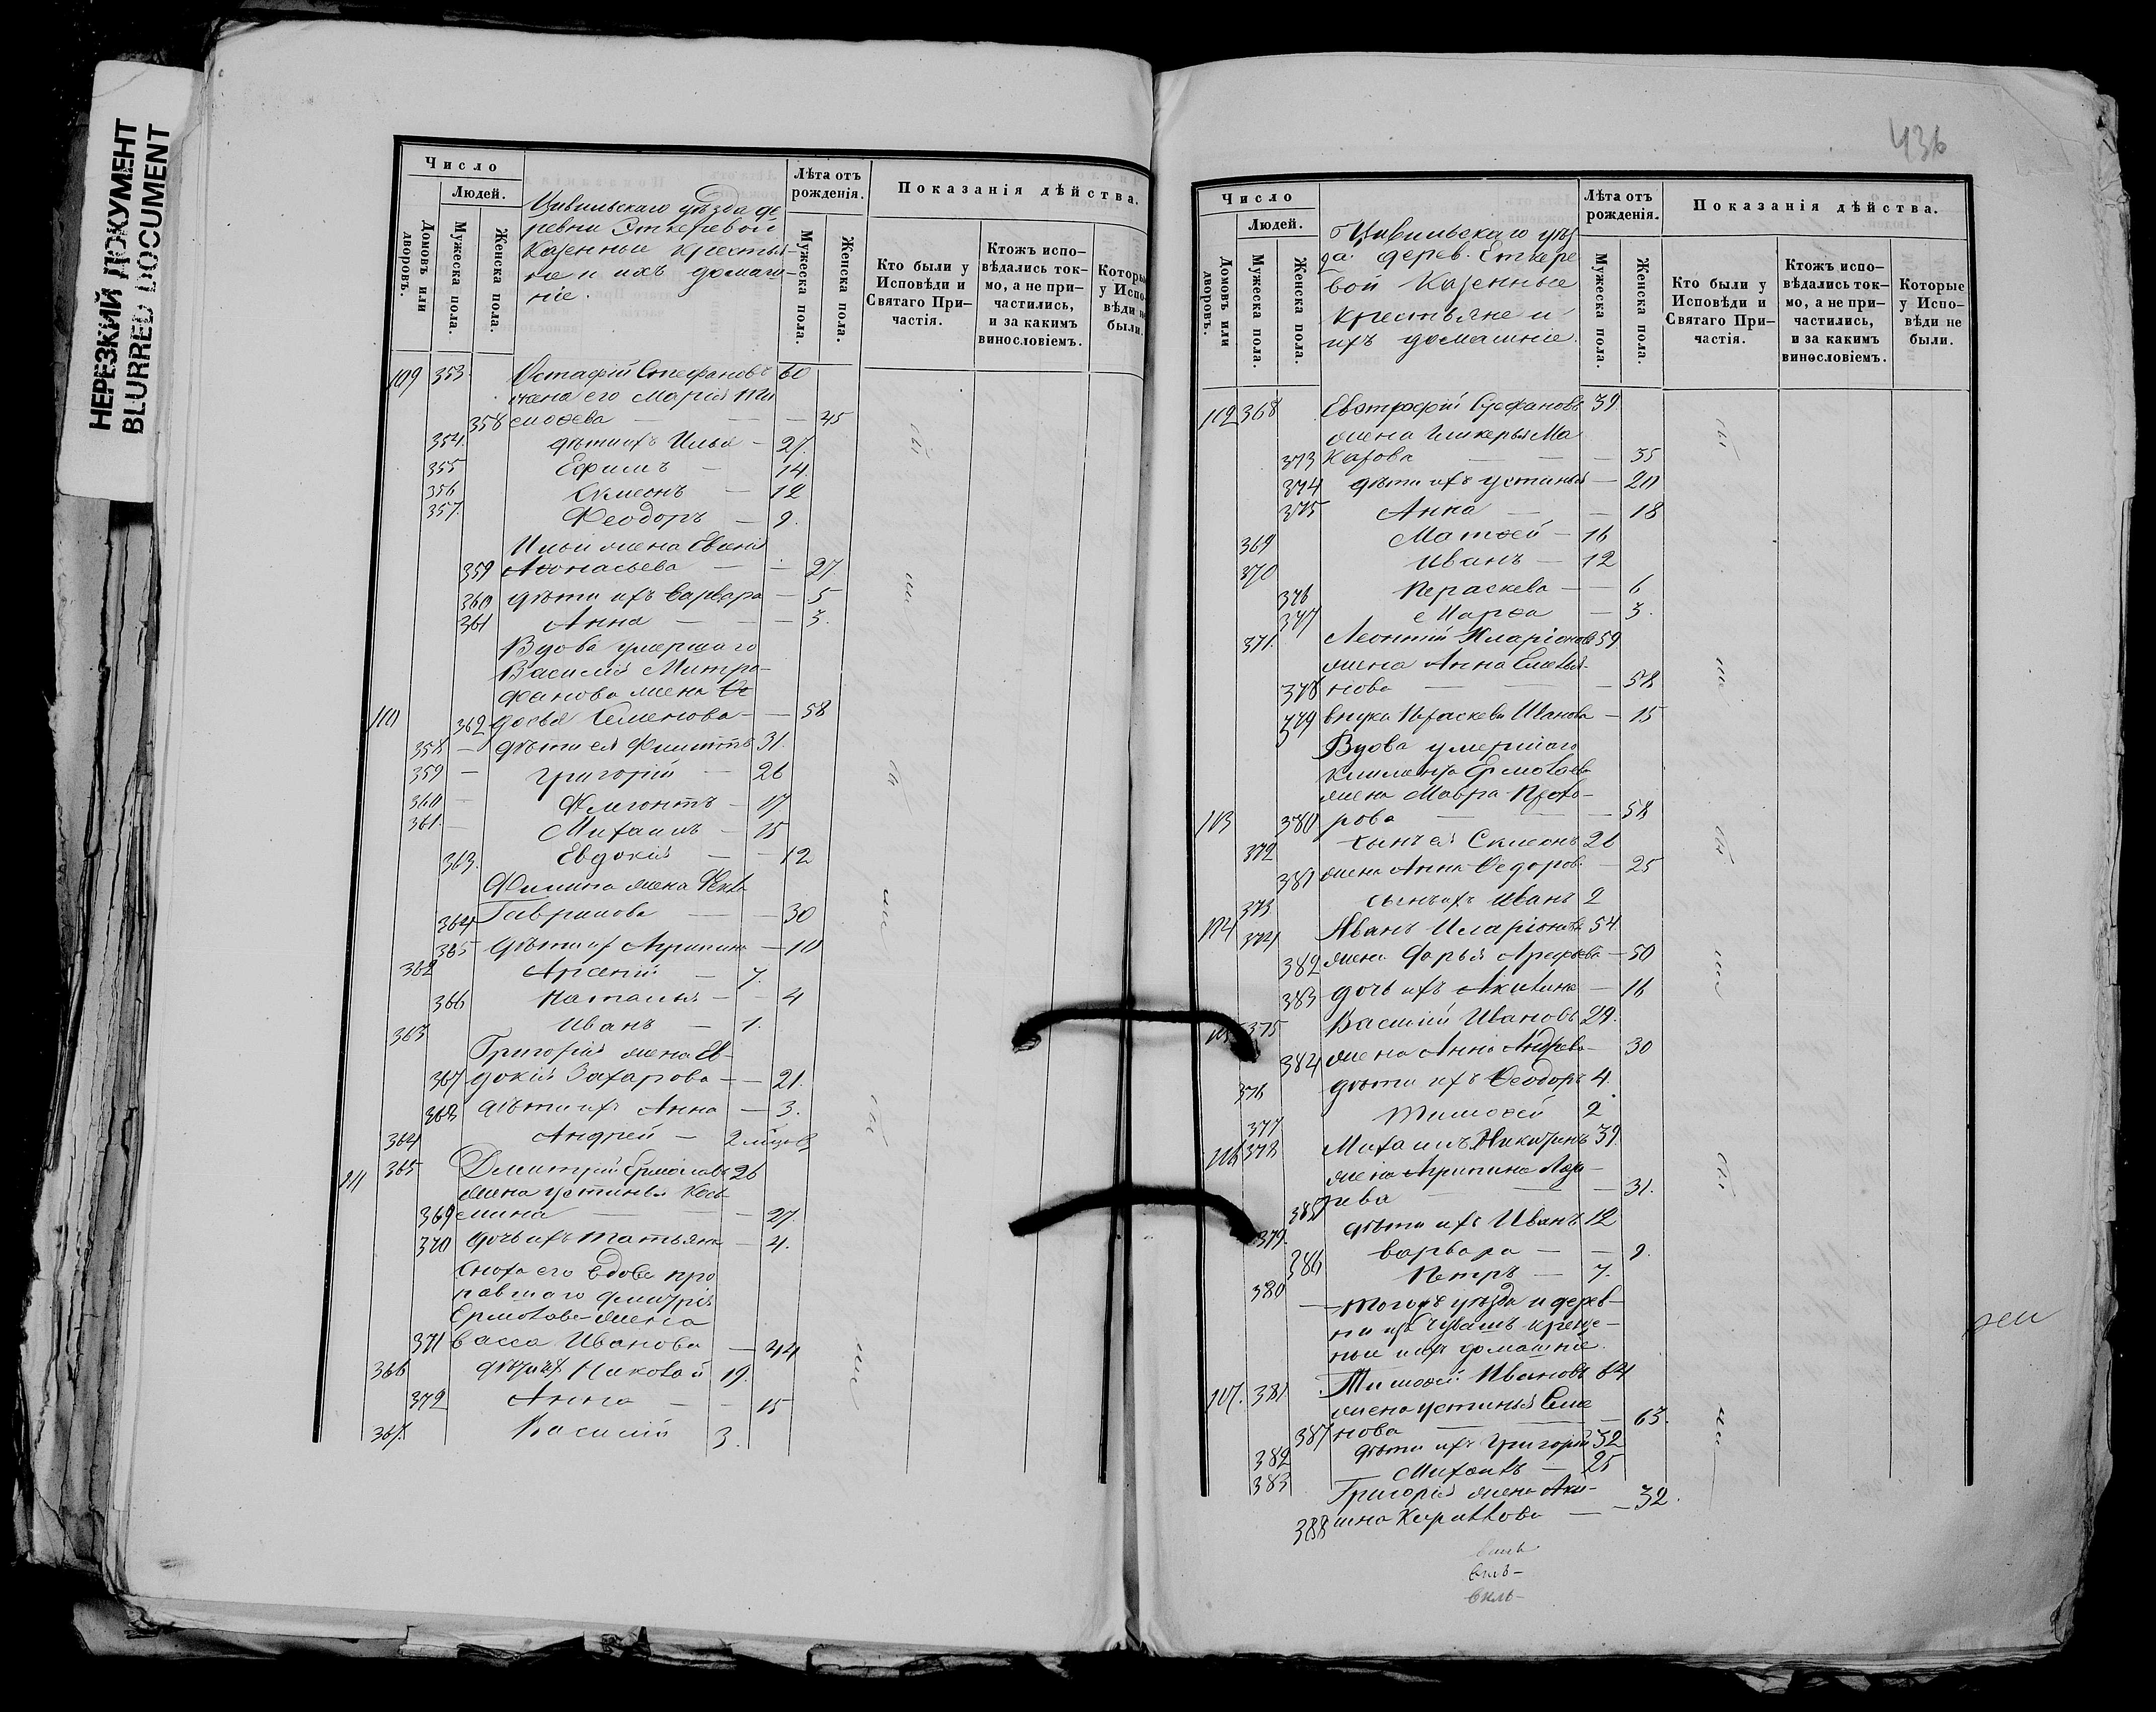 НЕРЕЗКИЙ ДОКУМЕНТ
BLURRED DOCUMENT
Число
Людей.
Домовъ или дворовъ.
Мужеска пола.
Женска пола.
Цивильскаго уѣзда де
ревни
Казенные крестья-
не и ихъ домаш-
ніе.
Лѣта отъ рожденія.
Мужеска пола.
Женска пола.
Показанія дѣйства.
Кто были у Исповѣди и Святаго При-частія.
Ктожъ испо-вѣдались ток-мо, а не при-частились, и за какимъ винословіемъ.
Которые у Испо-вѣди не были.
109 353 Остафій Стефановъ 60
жена его Марія Ти
358 моѳева — — 45
354 дѣти ихъ Илья — 27
355 Ефимъ — 14
356 Симеонъ — 12
357 Ѳеодоръ — 9
Ильи жена
359 Аѳонасьева — 27
360 дѣти ихъ Варвара — 5
361 Анна — — 3.
Вдова умершаго
Василія Митро-
фанова жена Ѳе
110 362 досья Семенова — 58
358 — дѣти ея Филиппъ 31.
359 — Григорій — 26
360 — — 17
361 — Михаилъ — 15
363. Евдокія — — 12
Филипа жена
364 Гаврилова — 30
365 дѣти их Агрипина — 10
362 Арсеній — 7.
366 Наталья — 4
363 Иванъ — 1.
Григорія жена Ев-
367 докія Захарова — — 21.
368 дѣти ихъ Анна — 3.
364 Андрей — 2
111 365 Дмитрій Ермолаевъ 26
жена Устинья Козь
369 мина — — 27
370 дочь ихъ Татьяна — 4.
Сноха его вдова про
павшаго Дмитрія
Ермолаева жена
371 Васса Иванова — 44
366 Николай 19.
372 Анна — — 15
367. Василій 3.
436
Число
Людей.
Домовъ или дворовъ.
Мужеска пола.
Женска пола.
Цивильскаго уѣз
да. дерев. Еткере
вой Казенные
крестьяне и
ихъ домашніе.
Лѣта отъ рожденія.
Мужеска пола.
Женска пола.
Показанія дѣйства.
Кто были у Исповѣди и Святаго При-частія.
Ктожъ испо-вѣдались ток-мо, а не при-частились, и за какимъ винословіемъ.
Которые у Испо-вѣди не были.
112 368 Евстрофій Стефановъ 39
жена Гликерья Ма
373 карова — — 35
374 дѣти ихъ Устинья — 20
375 Анна — — 18
369 Матѳей — 16
370 Иванъ — 12
376 Пераскева — 6
377 Марѳа — 3.
371. Леонтій Иларіоновъ 59
жена Анна Емелья-
378 нова — — 58
379 внука Пераскева Иванова — 15
Вдова умершаго
Климента Ермолаева
жена Мавра Прохо-
113 380 рова — — 58
372 сынъ ея Симеонъ 26
381 жена Анна Ѳедоров. — 25
373 сынъ ихъ Иванъ 2
114 374 Иванъ Иларіоновъ 54
382 жена Дарья Арефьева — 50
383 дочь ихъ Акилина — 16
115 375 Василій Ивановъ 29.
384 жена Анна Андреева — 30
376 дѣти ихъ Ѳеодоръ 4.
377 Тимоѳей 2
116 378 Михаилъ Никитинъ 39
жена Агрипина Лаза-
385 рева — — 31.
379. дѣти ихъ Иванъ 12
386 Варвара — — 9.
380 Петръ — 7.
— Тогожъ уѣзда и дерев-
ни изъ Чувашъ креще-
ные и ихъ домашніе.
117. 381 Тимоѳей Ивановъ 64
жена Устинья Семе
387 нова — — 63.
382 дѣти ихъ Григорій 32
383 Михаилъ — 25
Григорія жена Аки-
388 лина Кириллова — — 32.